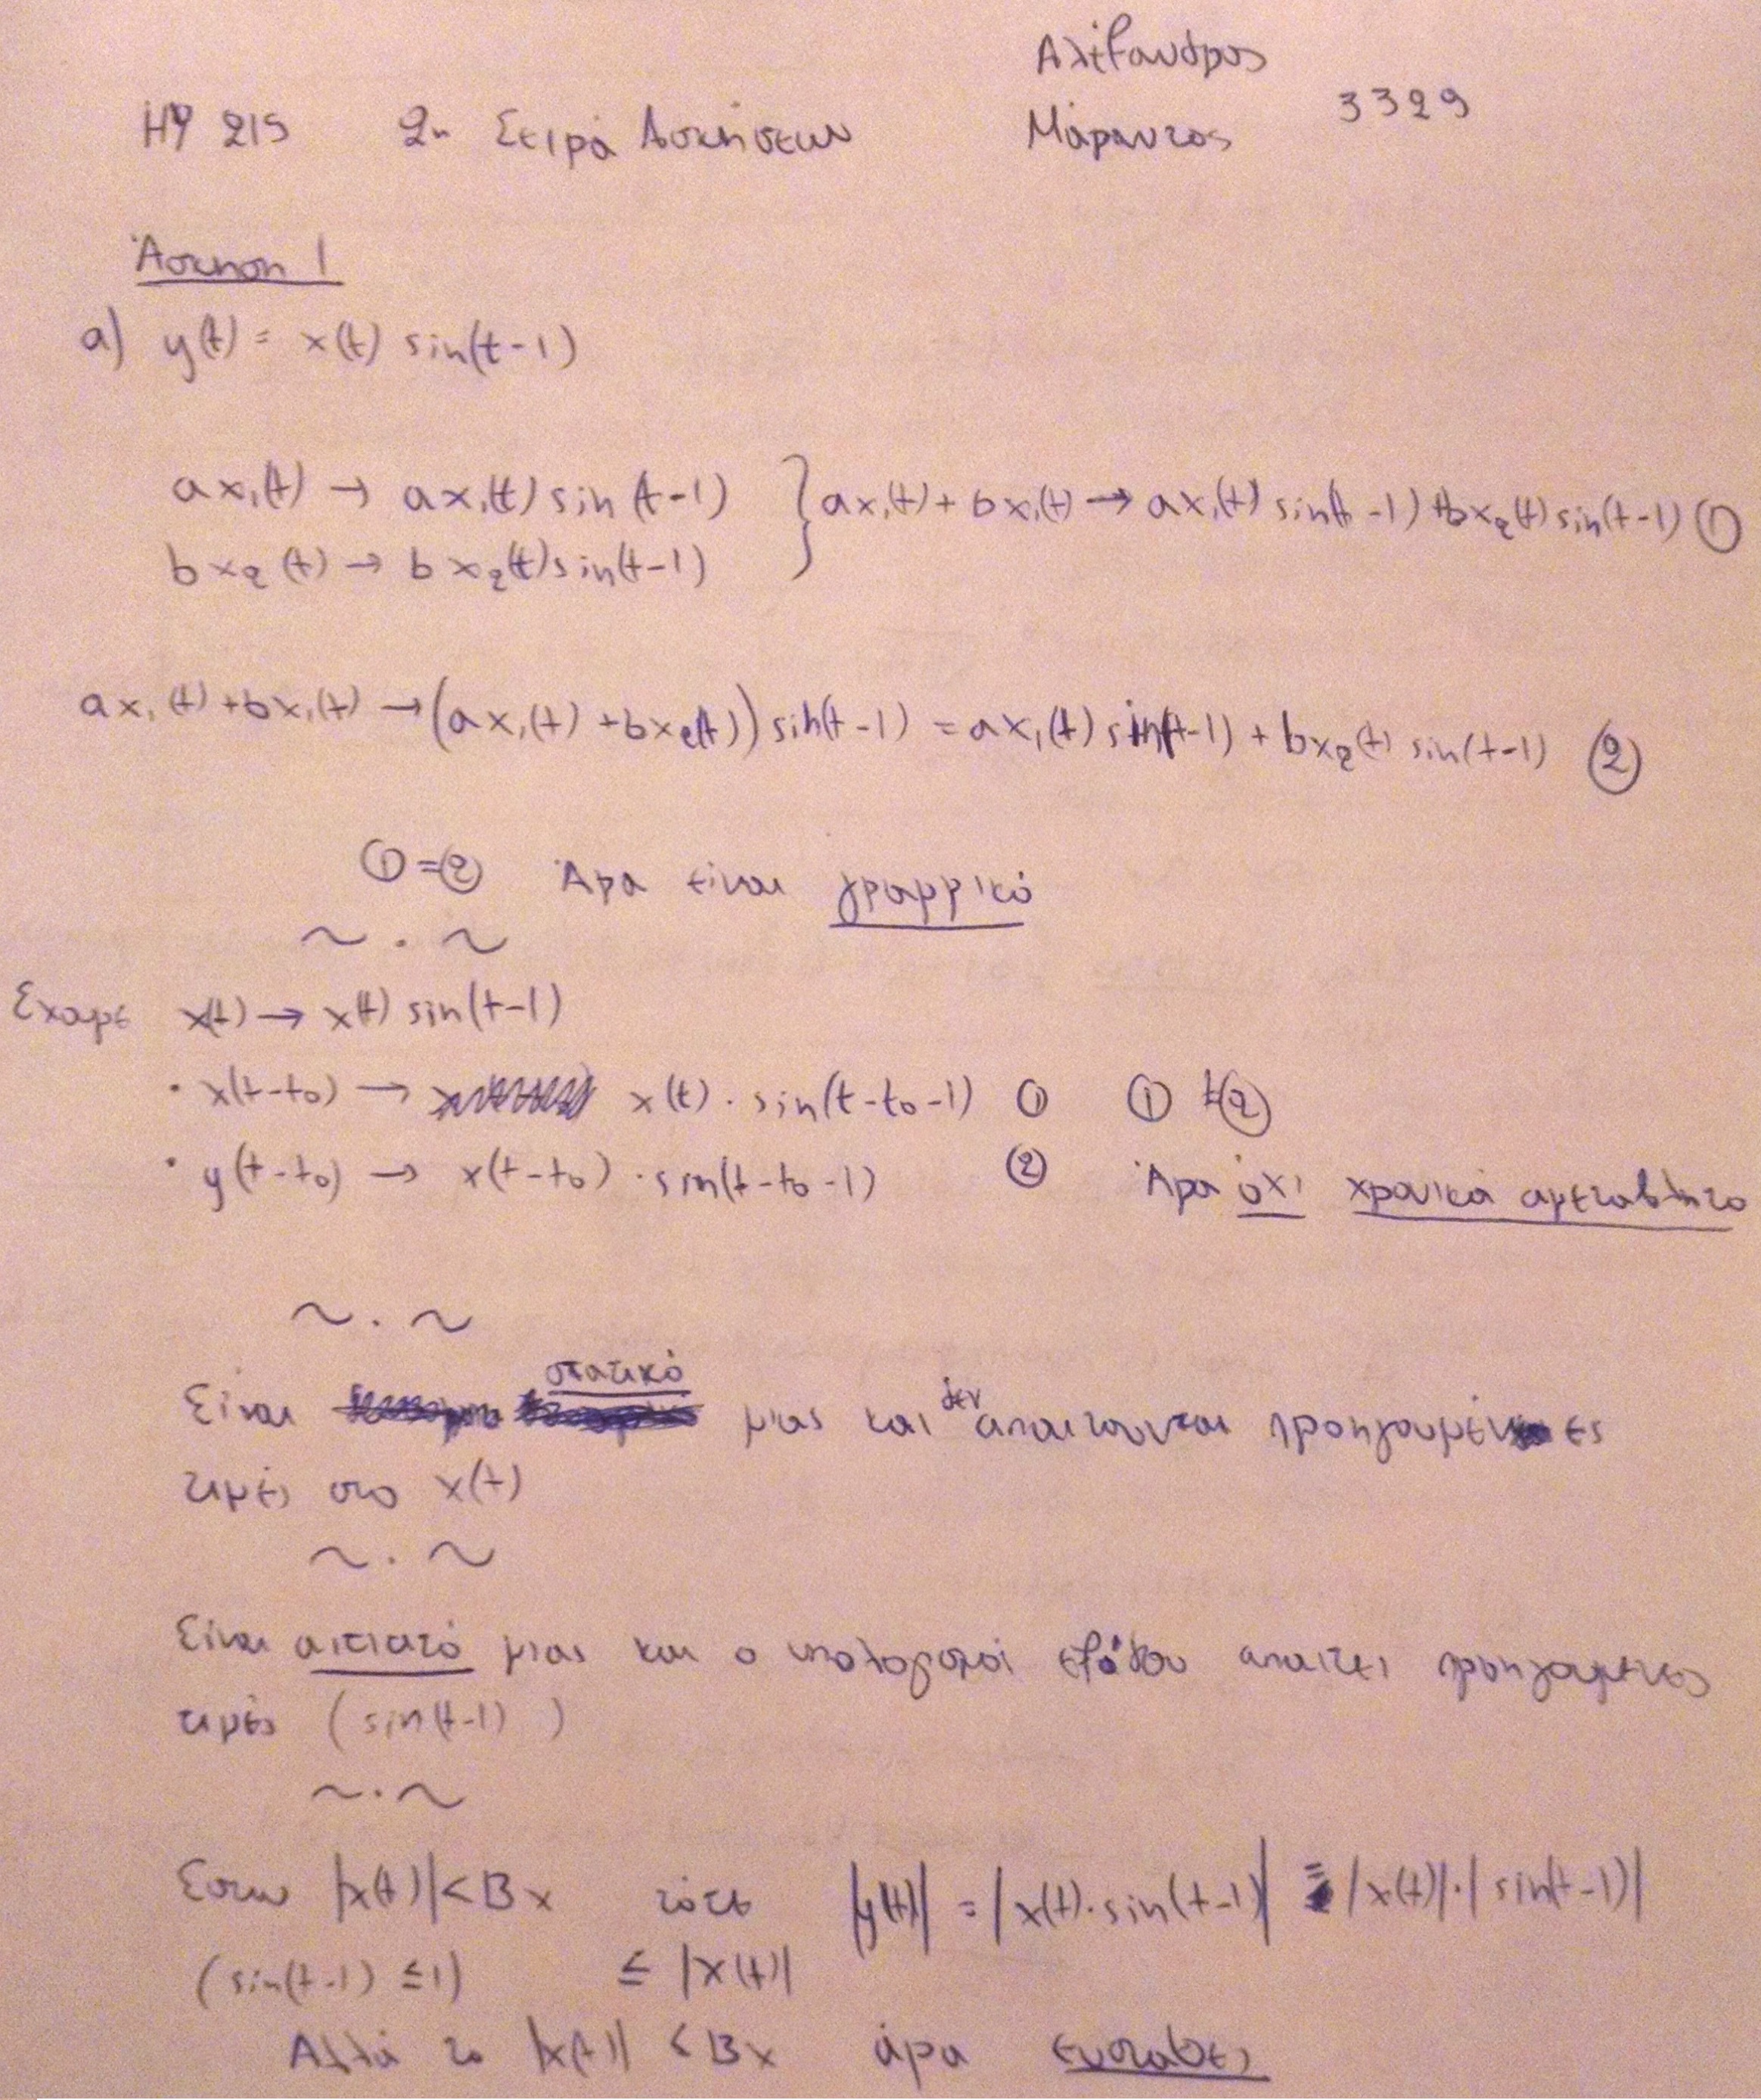 Αλέξανδρος
ΗΥ 215 2η Σειρά Ασκήσεων Μάραντος 3329
Άσκηση 1
a) y(t) = x(t) sin(t-1)
ax₁(t) → ax₁(t) sin(t-1) } ax₁(t) + bx₁(t) → ax₁(t) sin(t-1) + bx₂(t) sin(t-1) ①
bx₂(t) → bx₂(t) sin(t-1)
ax₁(t) + bx₁(t) → (ax₁(t) + bx₂(t)) sin(t-1) = ax₁(t) sin(t-1) + bx₂(t) sin(t-1) ②
① = ② Άρα είναι γραμμικό
~ . ~
Έχουμε x(t) → x(t) sin(t-1)
· x(t-t₀) → x(t) · sin(t-t₀-1) ① ① ≠ ②
· y(t-t₀) → x(t-t₀) · sin(t-t₀-1) ② Άρα όχι χρονικά αμετάβλητο
~ . ~
στατικό
Είναι μιας και δεν απαιτουνται προηγουμένες
τιμές στο x(t)
~ . ~
Είναι αιτιατό μιας και ο υπολογισμοί εξόδου απαιτει προηγουμενες
τιμές (sin(t-1))
~ . ~
Εστω |x(t)| < Bx τότε |y(t)| = |x(t)·sin(t-1)| = |x(t)|·|sin(t-1)|
(sin(t-1) ≤ 1) ≤ |x(t)|
Αλλά το |x(t)| < Bx άρα ευσταθες